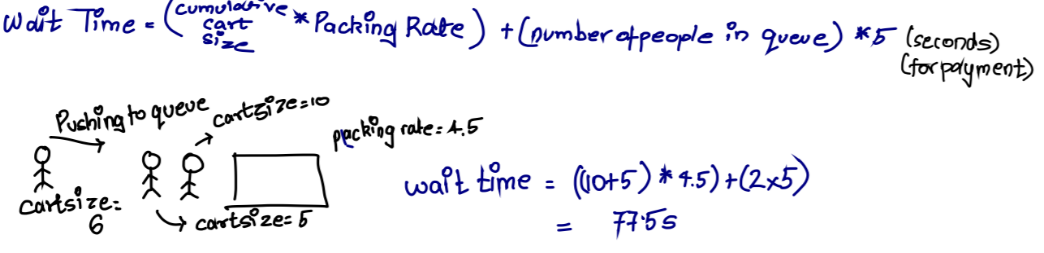 Wait Time = (cumulative cart size * Packing Rate) + (number of people in queue) * 5 (seconds)
(for payment)
Pushing to queue
cartsize=10
packing rate = 4.5
cartsize= 6
cartsize= 5
wait time = ((10+5) * 4.5) + (2x5)
= 77.5s